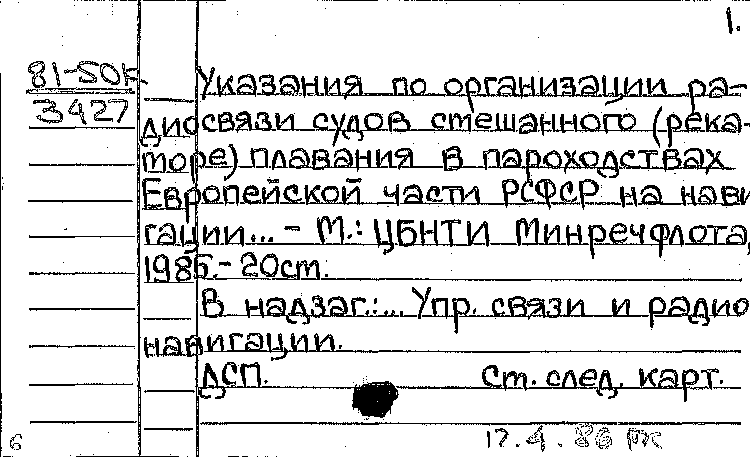 1.
81-50к
3427
Указания по организации ра-
диосвязи судов смешанного (река-
море) плавания в пароходствах
Европейской части РСФСР на нави
гации... - М.: ЦБНТИ Минречфлота,
1985.- 20ст.
В надзаг.:... Упр. связи и радио
навигации.
ДСП. Ст. след. карт.
17.4.86
6